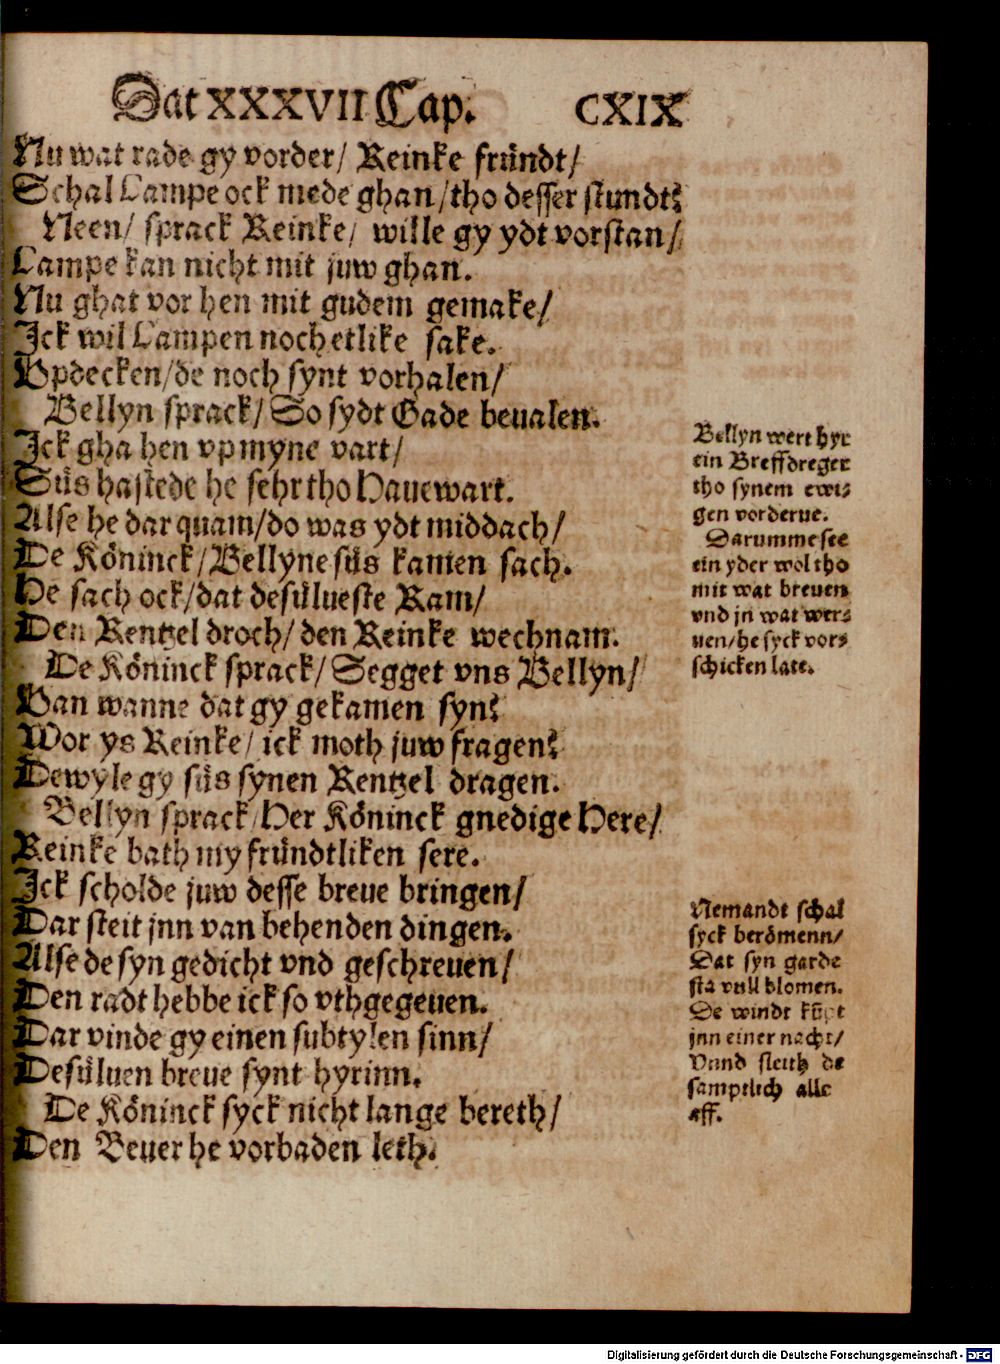 Dat XXXVII Cap. CXIX
Nu wat rade gy vorder/ Reinke fründt/
Schal Lampe ock mede ghan/tho desser stundt?
Neen/ sprack Reinke/ wille gy ydt vorstan/
Lampe kan nicht mit juw ghan.
Nu ghat vor hen mit gudem gemake/
Ick wil Lampen noch etlike sake.
Vpdecken/de noch synt vorhalen/
Bellyn sprack/ So sydt Gade beualen.
Ick gha hen vp myne vart/
Süs hastede he sehr tho Hauewart.
Alse he dar quam/do was ydt middach/
De Köninck/Bellyne süs kamen sach.
He sach ock/dat desülueste Ram/
Den Rentzel droch/ den Reinke wechnam.
De Köninck sprack/ Segget vns Bellyn/
Van wanne dat gy gekamen syn?
Wor ys Reinke/ ick moth juw fragen?
Dewyle gy süs synen Rentzel dragen.
Bellyn sprack/Her Köninck gnedige Here/
Reinke bath my fründtliken sere.
Ick scholde juw desse breue bringen/
Dar steit jnn van behenden dingen.
Alse de syn gedicht vnd geschreuen/
Den radt hebbe ick so vthgegeuen.
Dar vinde gy einen subtylen sinn/
Desüluen breue synt hyrinn.
De Köninck syck nicht lange bereth/
Den Beuer he vorbaden leth.
Bellyn wert hyr
ein Breffdreger
tho synem ewi⸗
gen vorderue.
Darumme see
ein yder wol tho
mit wat breuen
vnd jn wat wer⸗
uen/he syck vor⸗
schicken late.
Nemandt schal
syck berömenn/
Dat syn garde
sta vull blomen.
De windt kümpt
jnn einer nacht/
Vnnd sleith de
samptlich alle
aff.
Digitalisierung gefördert durch die Deutsche Forschungsgemeinschaft - DFG